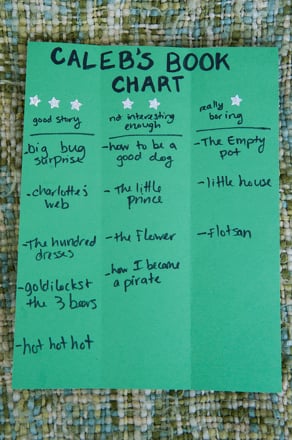 CALEB'S BOOK
CHART
good story
-big bug
surprise
-charlotte's
web
-The hundred
dresses
-goldilocks &
the 3 bears
-hot hot hot
not interesting
enough
-how to be a
good dog
- The little
prince
-the flower
-how I became
a pirate
really
boring
-The Empty
pot
-little house
-flotsan